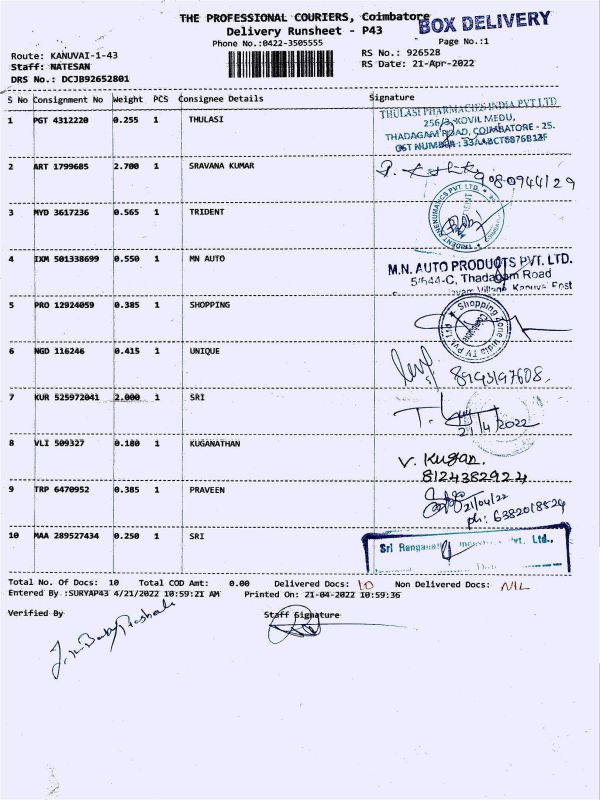 THE PROFESSIONAL COURIERS, Coimbatore
BOX DELIVERY
Delivery Runsheet - P43
Phone No.:0422-3505555
Page No.:1
Route: KANUVAI-1-43
RS No.: 926528
Staff: NATESAN
RS Date: 21-Apr-2022
DRS No.: DCJB92652801
S No Consignment No Weight PCS Consignee Details Signature
1 PGT 4312220 0.255 1 THULASI
THULASI PHARMACIES INDIA PVT LTD
256/3, KOVIL MEDU,
THADAGAM ROAD, COIMBATORE - 25.
GST NUMBER : 33AABCT8876B1ZF
2 ART 1799685 2.700 1 SRAVANA KUMAR
9080944129
3 MYD 3617236 0.565 1 TRIDENT
TRIDENT PNEUMATICS PVT. LTD.
4 IXM 501338699 0.550 1 MN AUTO
M.N. AUTO PRODUCTS PVT. LTD.
5/644-C, Thadagam Road
5 PRO 12924059 0.385 1 SHOPPING
Shopping Zone India TV Pvt. Ltd
6 NGD 116246 0.415 1 UNIQUE
8193197608
7 KUR 525972041 2.000 1 SRI
21/4/2022
8 VLI 509327 0.180 1 KUGANATHAN
V. Kugan.
8124382924
9 TRP 6470952 0.385 1 PRAVEEN
21/04/22
ph: 6382018524
10 MAA 289527434 0.250 1 SRI
Sri Ranganathar Pvt. Ltd.,
Total No. Of Docs: 10 Total COD Amt: 0.00 Delivered Docs: 10 Non Delivered Docs: NIL
Entered By :SURYAP43 4/21/2022 10:59:21 AM Printed On: 21-04-2022 10:59:36
Verified By Staff Signature